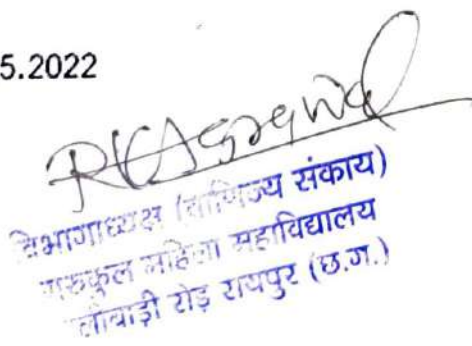 5.2022
RKAgrawal
विभागाध्यक्ष (वाणिज्य संकाय)
गुरुकुल महिला महाविद्यालय
रोड़ रायपुर (छ.ग.)